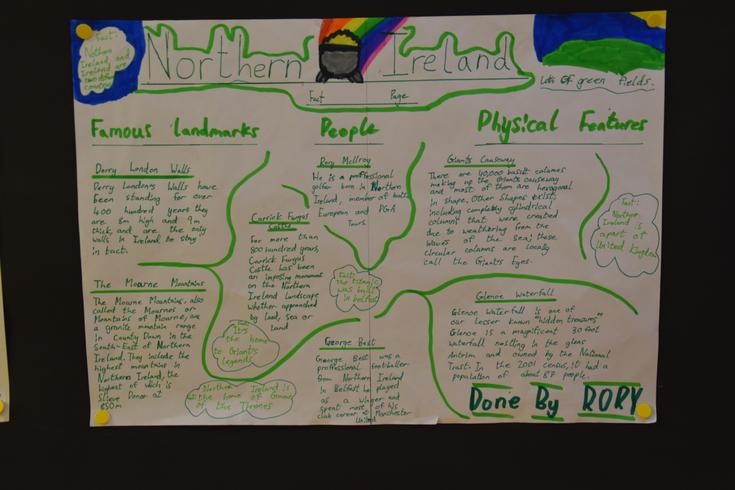 Fact:
Nothern
Ireland, and
Ireland are
two different
countrys
Northern Ireland
Fact Page
Lots of green fields.
Famous landmarks
Derry London Walls
Derry London's Walls have
been standing for over
400 hundred years they
are 8m high and 9m
thick, and are the only
walls in Ireland to stay
in tact.
The Mourne Mountains
The Mourne Mountains, also
called the Mournes or
Mountains of Mourne, are
a granite mountain range
in County Down in the
South-East of Northern
Ireland. They include the
highest mountains in
Northern Ireland, the
highest of which is
Slieve Donar at
850m
Carrick Fungus
Castle
For more than
800 hundred years,
Carrick Fungus
Castle has been
an imposing monument
on the Northern
Ireland landscape
whether approached
by land, sea or
land
Fact: It's
the home
to Giants
legends.
Northern Ireland is
the home of Game
of the Thrones
People
Rory McIlroy
He is a proffesional
golfer born in Northern
Ireland, member of both
European and PGA
Tours.
Fact:
The titanic
was built
in belfast
George Best
George Best was a
professional footballer
from Northern Ireland
in Belfast he played
as a Winger and
spent most of his
club career at Manchester
United
Physical Features
Giants Causeway
There are 40,000 basalt columns
making up the Giants causeway
and most of them are hexagonal
in shape. Other shapes exist,
including completely cylindrical
columns that were created
due to weathering from the
waves of the sea; these
circular columns are locally
call the Giants Eyes.
Fact:
Nothern
Ireland is
apart of
United Kingdom
Glenoe Waterfall
Glenoe Waterfall is one of
our lesser known "hidden treasures"
Glenoe is a magnificent 30 foot
Waterfall nestling in the glens
Antrim and owned by the National
Trust. In the 2001 census, it had a
population of about 87 people.
Done By RORY